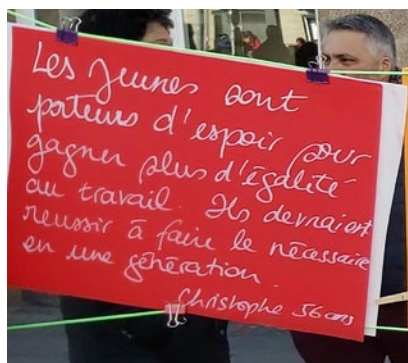 Les jeunes sont
porteurs d'espoir pour
gagner plus d'égalité
au travail. Ils devraient
reussir à faire le nécessaire
en une génération.
Christophe 56 ans